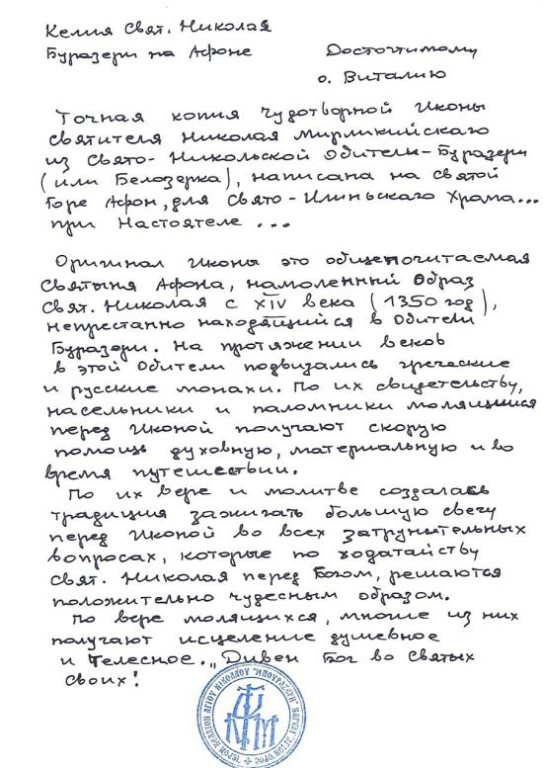 Келия Свят. Николая
Буразери на Афоне
Досточтимому
о. Виталию
Точная копия Чудотворной Иконы
Святителя Николая Мирликийскаго
из Свято-Никольской Обители-Буразери
(или Белозерка), написана на Святой
Горе Афон, для Свято-Илиньскаго Храма...
при Настоятеле ...
Оригинал Иконы это общепочитаемая
Святыня Афона, намоленный Образ
Свят. Николая с XIV века (1350 год),
непрестанно находящийся в Обители
Буразери. На протяжении веков
в этой Обители подвизались греческие
и русские монахи. По их свидетельству,
насельники и паломники молящиися
перед Иконой получают скорую
помощь духовную, материальную и во
время путешествии.
По их вере и молитве создалась
традиция зажигать большую свечу
перед Иконой во всех затрунительных
вопросах, которые по ходатайству
Свят. Николая перед Богом, решаются
положительно чудесным образом.
По вере молящихся, многие из них
получают исцеление душевное
и Телесное. „Дивен Бог во Святых
своих!